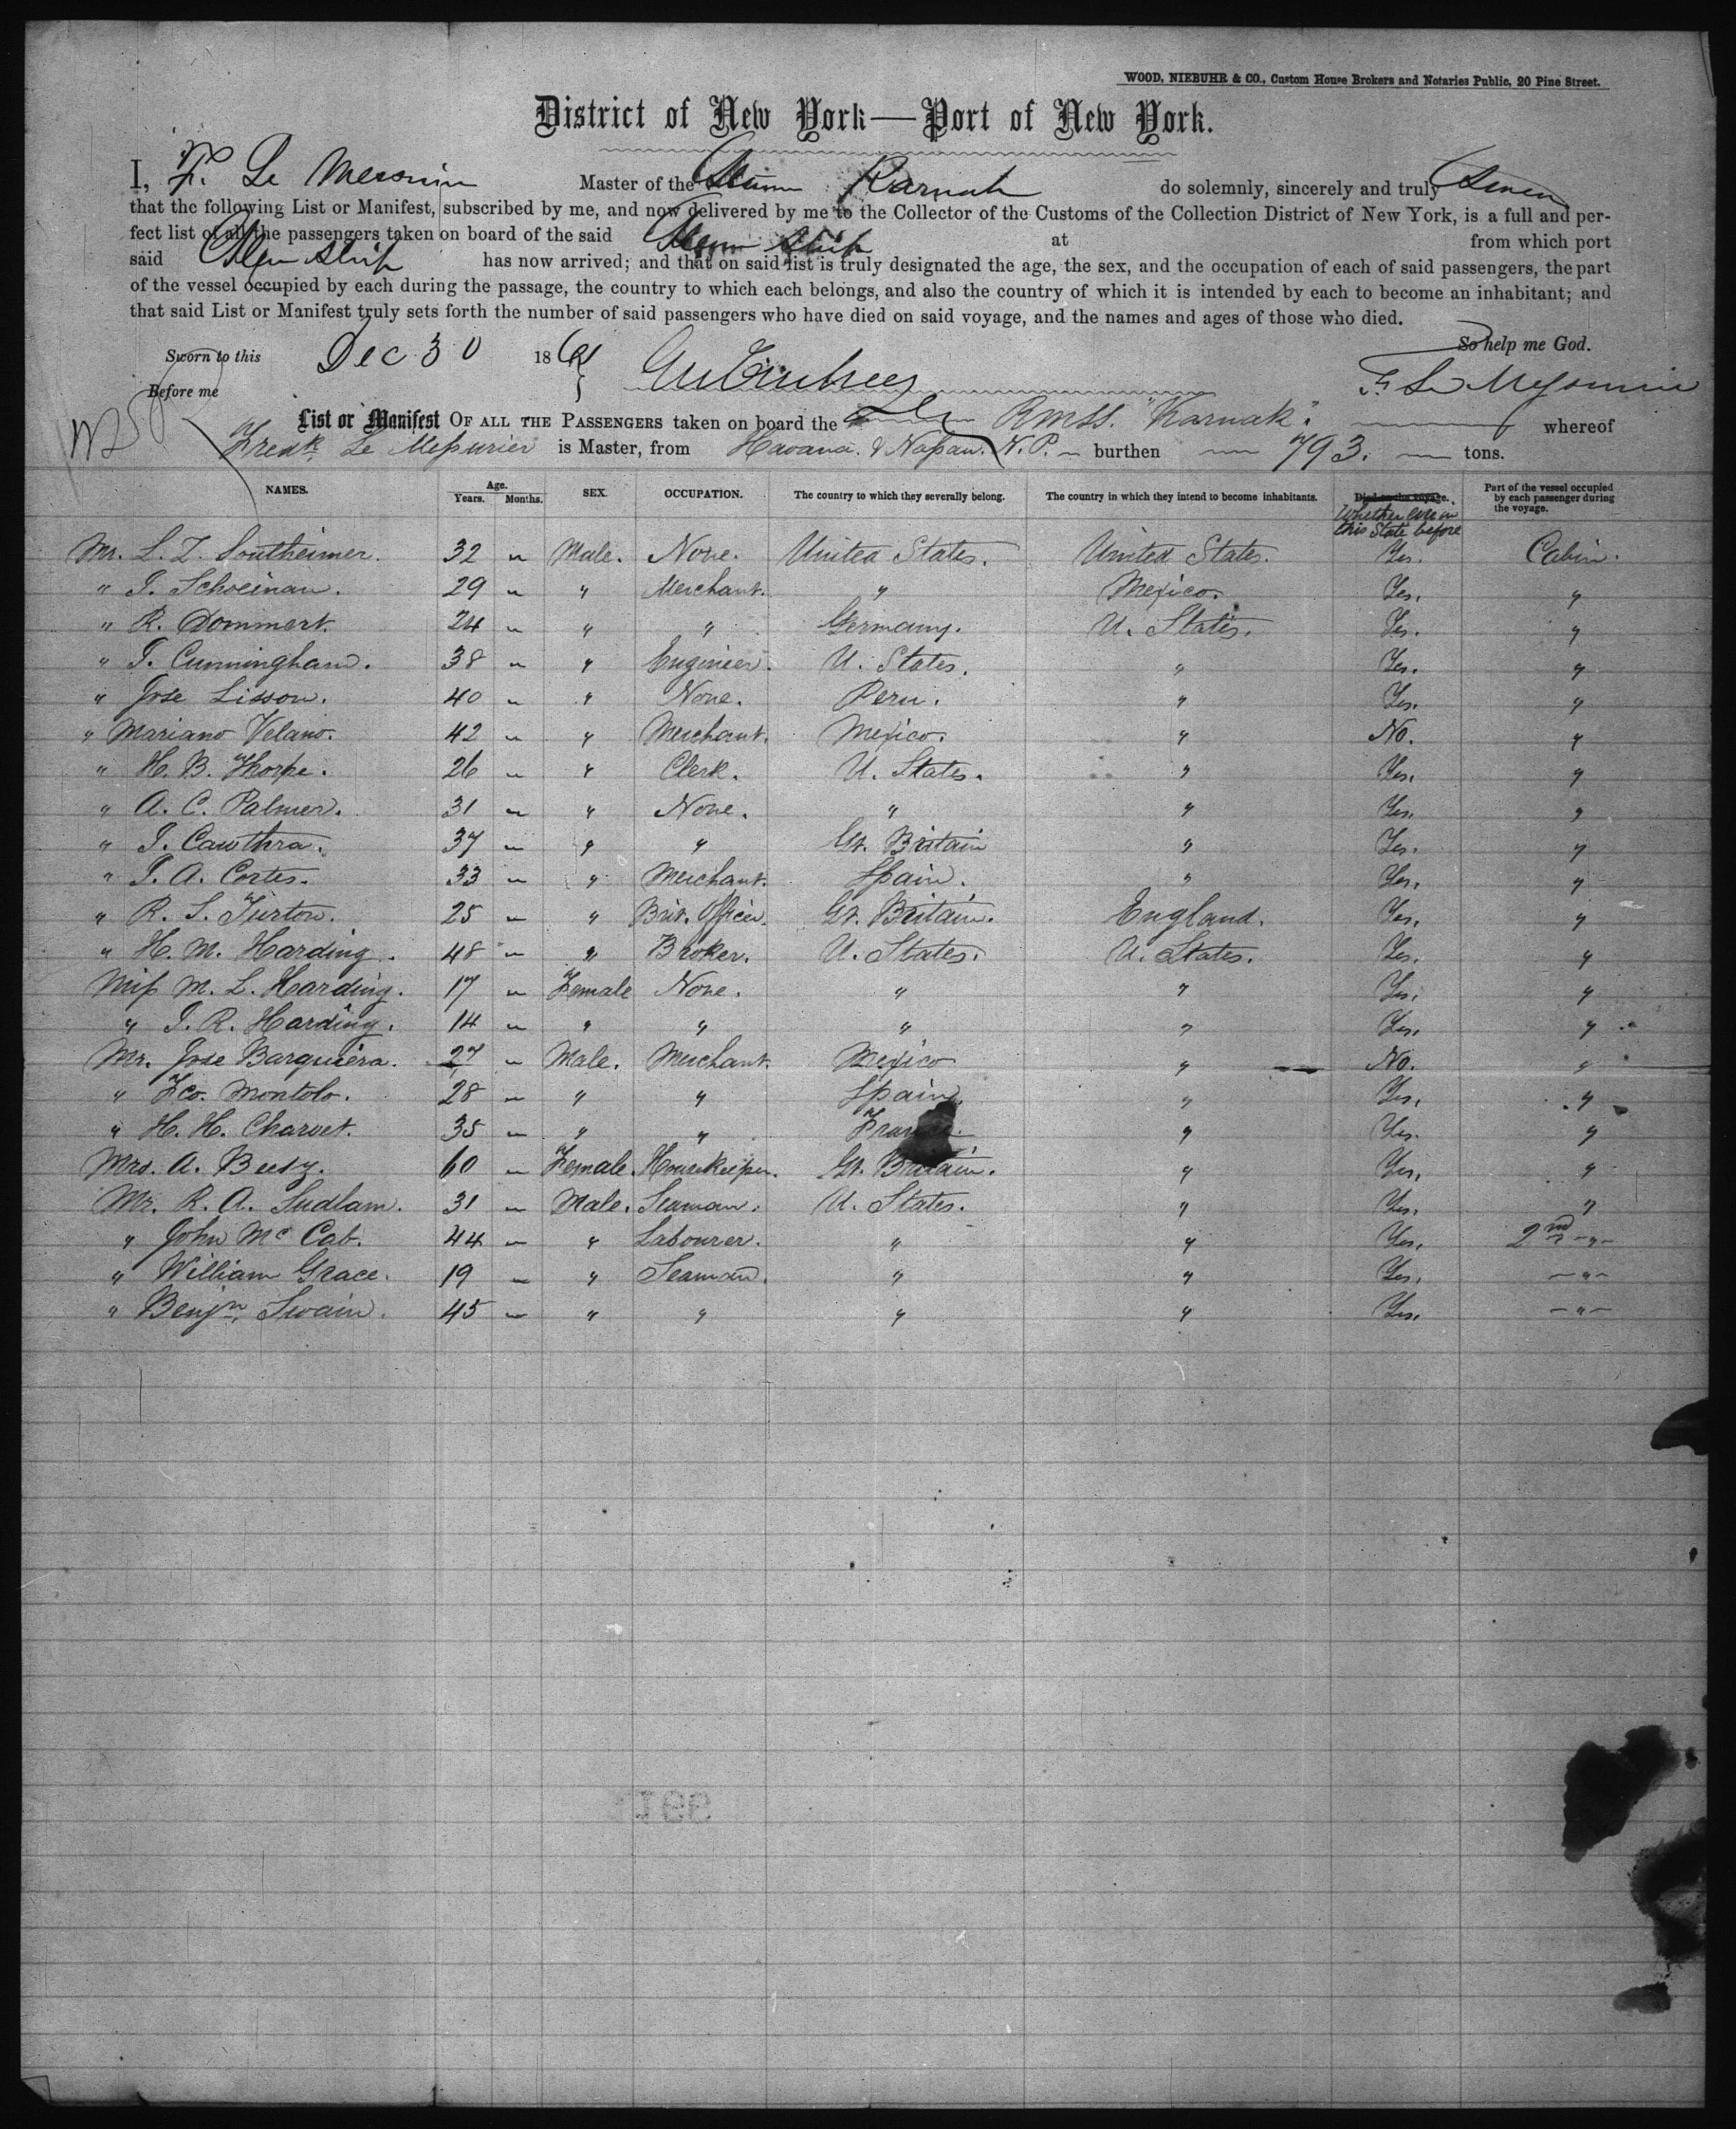 WOOD, NIEBUHR & CO., Custom House Brokers and Notaries Public, 20 Pine Street.
District of New York—Port of New York.
I, F. Le Messurier Master of the Steamer Karnak do solemnly, sincerely and truly swear
that the following List or Manifest, subscribed by me, and now delivered by me to the Collector of the Customs of the Collection District of New York, is a full and per-
fect list of all the passengers taken on board of the said Steam Ship at from which port
said Steam Ship has now arrived; and that on said list is truly designated the age, the sex, and the occupation of each of said passengers, the part
of the vessel occupied by each during the passage, the country to which each belongs, and also the country of which it is intended by each to become an inhabitant; and
that said List or Manifest truly sets forth the number of said passengers who have died on said voyage, and the names and ages of those who died.
Sworn to this Dec 30 186 So help me God.
Before me F. Le Messurier
List or Manifest OF ALL THE PASSENGERS taken on board the RMSS. "Karnak". whereof
Fredk. Le Messurier is Master, from Havana & Nassau. N.P. burthen 793. tons.
NAMES. Age. Years. Months. SEX. OCCUPATION. The country to which they severally belong. The country in which they intend to become inhabitants. Died on the voyage. Whether ever in this State before Part of the vessel occupied by each passenger during the voyage.
Mr. L. Z. Southeimer. 32 " Male. None. United States. United States. Yes. Cabin.
" J. Schoeinan. 29 " " Merchant. " Mexico. Yes. "
" R. Dommert. 24 " " " Germany. U. States. Yes. "
" J. Cunningham. 38 " " Engineer. U. States. " Yes. "
" Jose Lisson. 40 " " None. Peru. " Yes. "
" Mariano Velano. 42 " " Merchant. Mexico. " No. "
" H. B. Thorpe. 26 " " Clerk. U. States. " Yes. "
" A. C. Palmer. 31 " " None. " " Yes. "
" J. Cawthra. 37 " " " Gt. Britain " Yes. "
" J. A. Cortes. 33 " " Merchant. Spain. " Yes. "
" R. S. Turton. 25 " " Brit. Officer. Gt. Britain. England. Yes. "
" H. M. Harding. 48 " " Broker. U. States. U. States. Yes. "
Miss M. L. Harding. 17 " Female None. " " Yes. "
" J. R. Harding. 14 " " " " " Yes. "
Mr. Jose Barquiera. 27 " Male. Merchant. Mexico " No. "
" Fco. Montolo. 28 " " " Spain. " Yes. "
" H. H. Charvet. 35 " " " France. " Yes. "
Mrs. A. Beesy. 60 " Female. Housekeeper. Gt. Britain. " Yes. "
Mr. R. A. Sudlam. 31 " Male. Seaman. U. States. " Yes. "
" John McCab. 44 " " Labourer. " " Yes. 2nd "
" William Grace. 19 " " Seaman. " " Yes. "
" Benjn. Swain. 45 " " " " " Yes. "